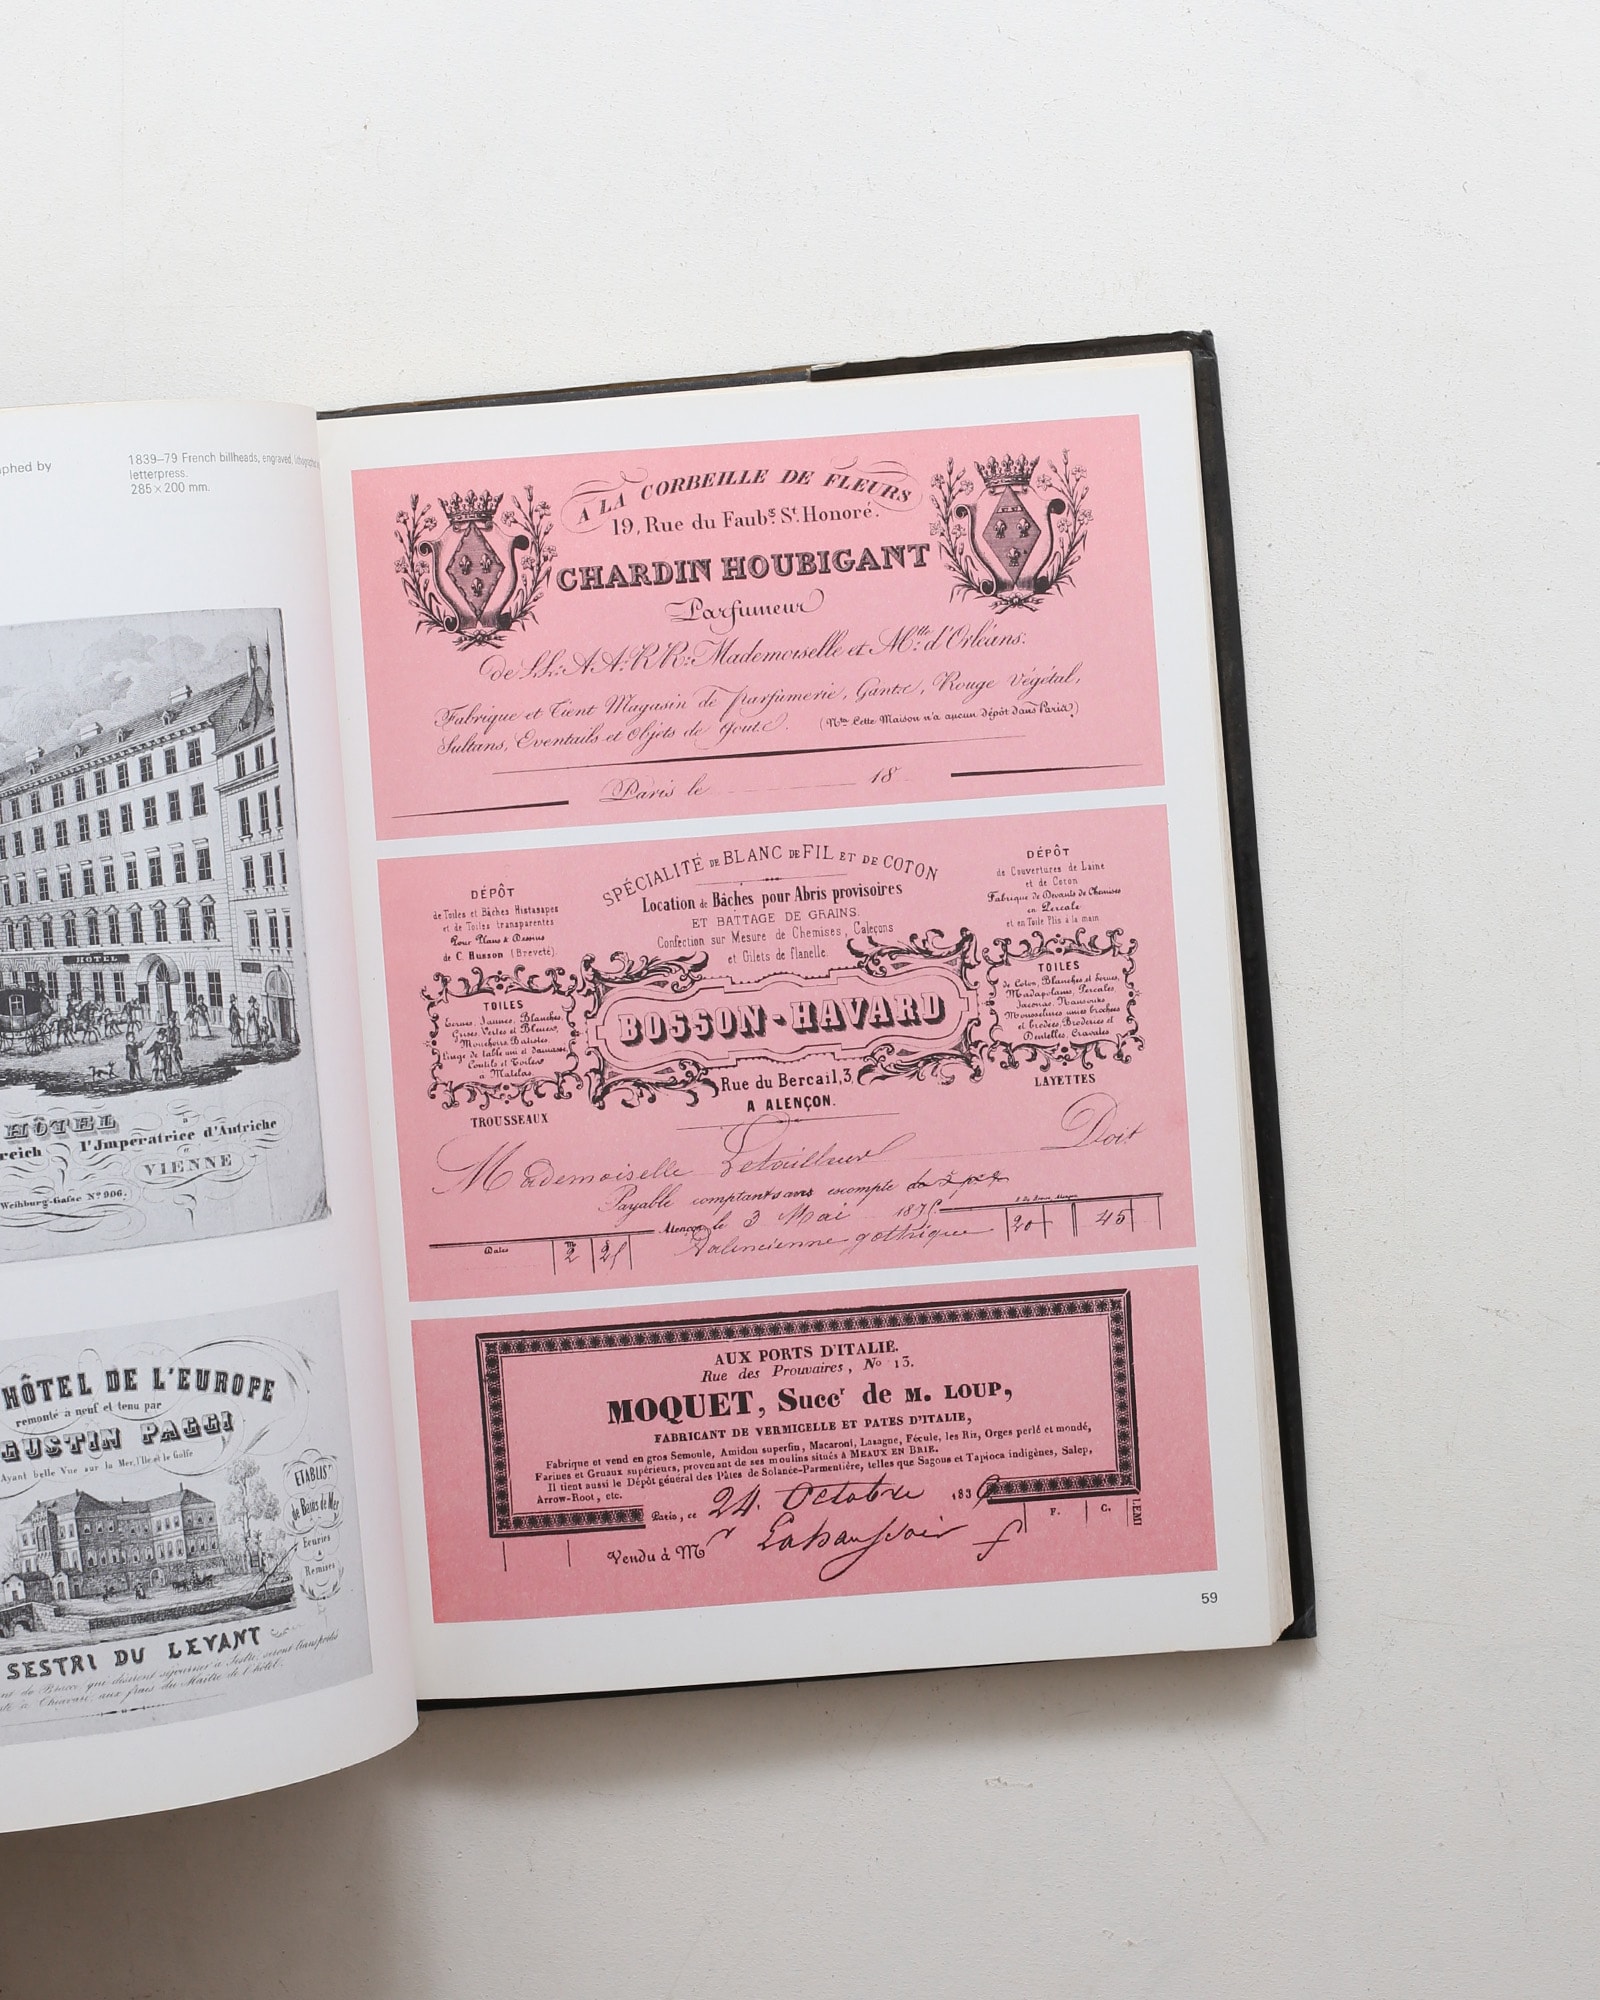 aphed by
1839–79 French billheads, engraved,
letterpress.
285 × 200 mm.
HOTEL
HÔTEL
reich l'Jmperatrice d'Autriche
à
VIENNE
Weihburg-Gasse Nº 906.
HÔTEL DE L'EUROPE
remonté à neuf et tenu par
GUSTIN PAGGI
Ayant belle Vue sur la Mer, l'Ile et le Golfe
ETABLIS.
de Bains de Mer
Ecuries
&
Remises
SESTRI DU LEVANT
que désirent séjourner à Sestri, seront transportés
à Chiavari, aux frais du Maître de l'hôtel.
A LA CORBEILLE DE FLEURS
19, Rue du Faubg. St. Honoré.
CHARDIN HOUBIGANT
Parfumeur
de LL: AA: RR: Mademoiselle et Mlle. d'Orléans.
Fabrique et Tient Magasin de parfumerie, Gants, Rouge Végétal,
Sultans, Eventails et Objets de Gout. (Nta Cette Maison n'a aucun dépôt dans Paris.)
Paris le 18
SPÉCIALITÉ DE BLANC DE FIL ET DE COTON
Location de Bâches pour Abris provisoires
ET BATTAGE DE GRAINS.
Confection sur Mesure de Chemises, Caleçons
et Gilets de flanelle.
DÉPÔT
de Toiles et Bâches Histasapes
et de Toiles transparentes
Pour Plans & Dessins
de C. Husson (Breveté)
DÉPÔT
de Couvertures de Laine
et de Coton
Fabrique de Devants de Chemises
en Percale
et en Toile Plis à la main
TOILES
Ecrues, Jaunes, Blanches
Grises Vertes et Bleues,
Mouchoirs Batistes
Linge de table uni et damassé
Coutils et Toiles
à Matelas
TROUSSEAUX
BOSSON-HAVARD
Rue du Bercail, 3,
A ALENÇON.
TOILES
de Coton, Blanches et Ecrues,
Madapolams, Percales,
Jaconas, Nansouks
Mousselines unies brochées
et brodées, Broderies et
Dentelles, Cravates
LAYETTES
Mademoiselle Letailleur Doit
Payable comptant sans escompte
Alençon le 3 Mai 1875
Dates
2 25 Valencienne gothique 20 45
AUX PORTS D'ITALIE.
Rue des Prouvaires, No 13.
MOQUET, Succr de M. LOUP,
FABRICANT DE VERMICELLE ET PATES D'ITALIE,
Fabrique et vend en gros Semoule, Amidon superfin, Macaroni, Lasagne, Fécule, les Riz, Orges perlé et mondé,
Farines et Gruaux supérieurs, provenant de ses moulins situés à MEAUX EN BRIE.
Il tient aussi le Dépôt général des Pâtes de Solance-Parmentière, telles que Sagous et Tapioca indigènes, Salep,
Arrow-Root, etc.
Paris, ce 24. Octobre 1839
F. C.
Vendu à Mr
59